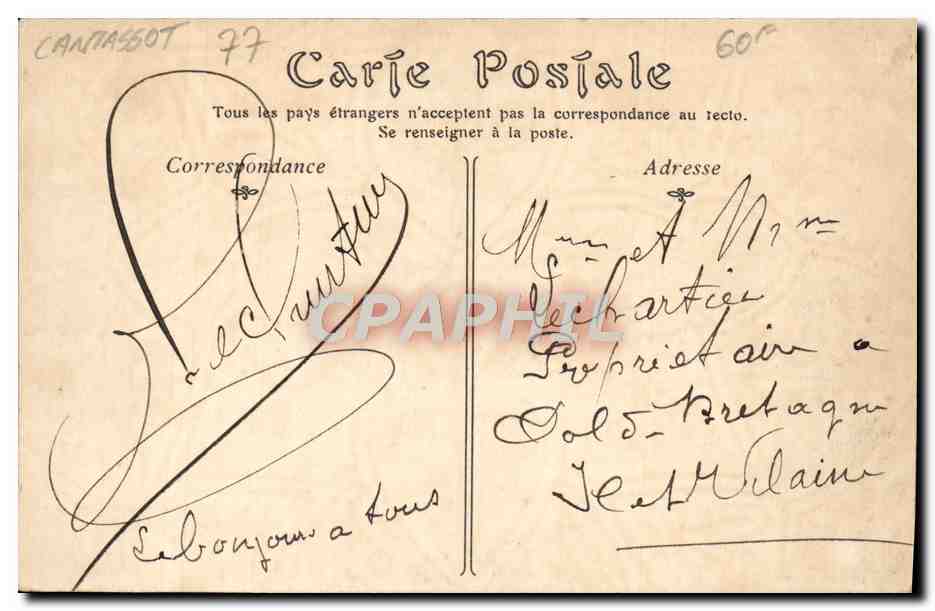 CANTASSOT 77 60F
Carte Postale
Tous les pays étrangers n'acceptent pas la correspondance au recto.
Se renseigner à la poste.
Correspondance
Le bonjour a tous
Adresse
et Mme
Lechartier
Propriétaire a
Dol d- Bretagne
Ile et Vilaine
CPAPHIL